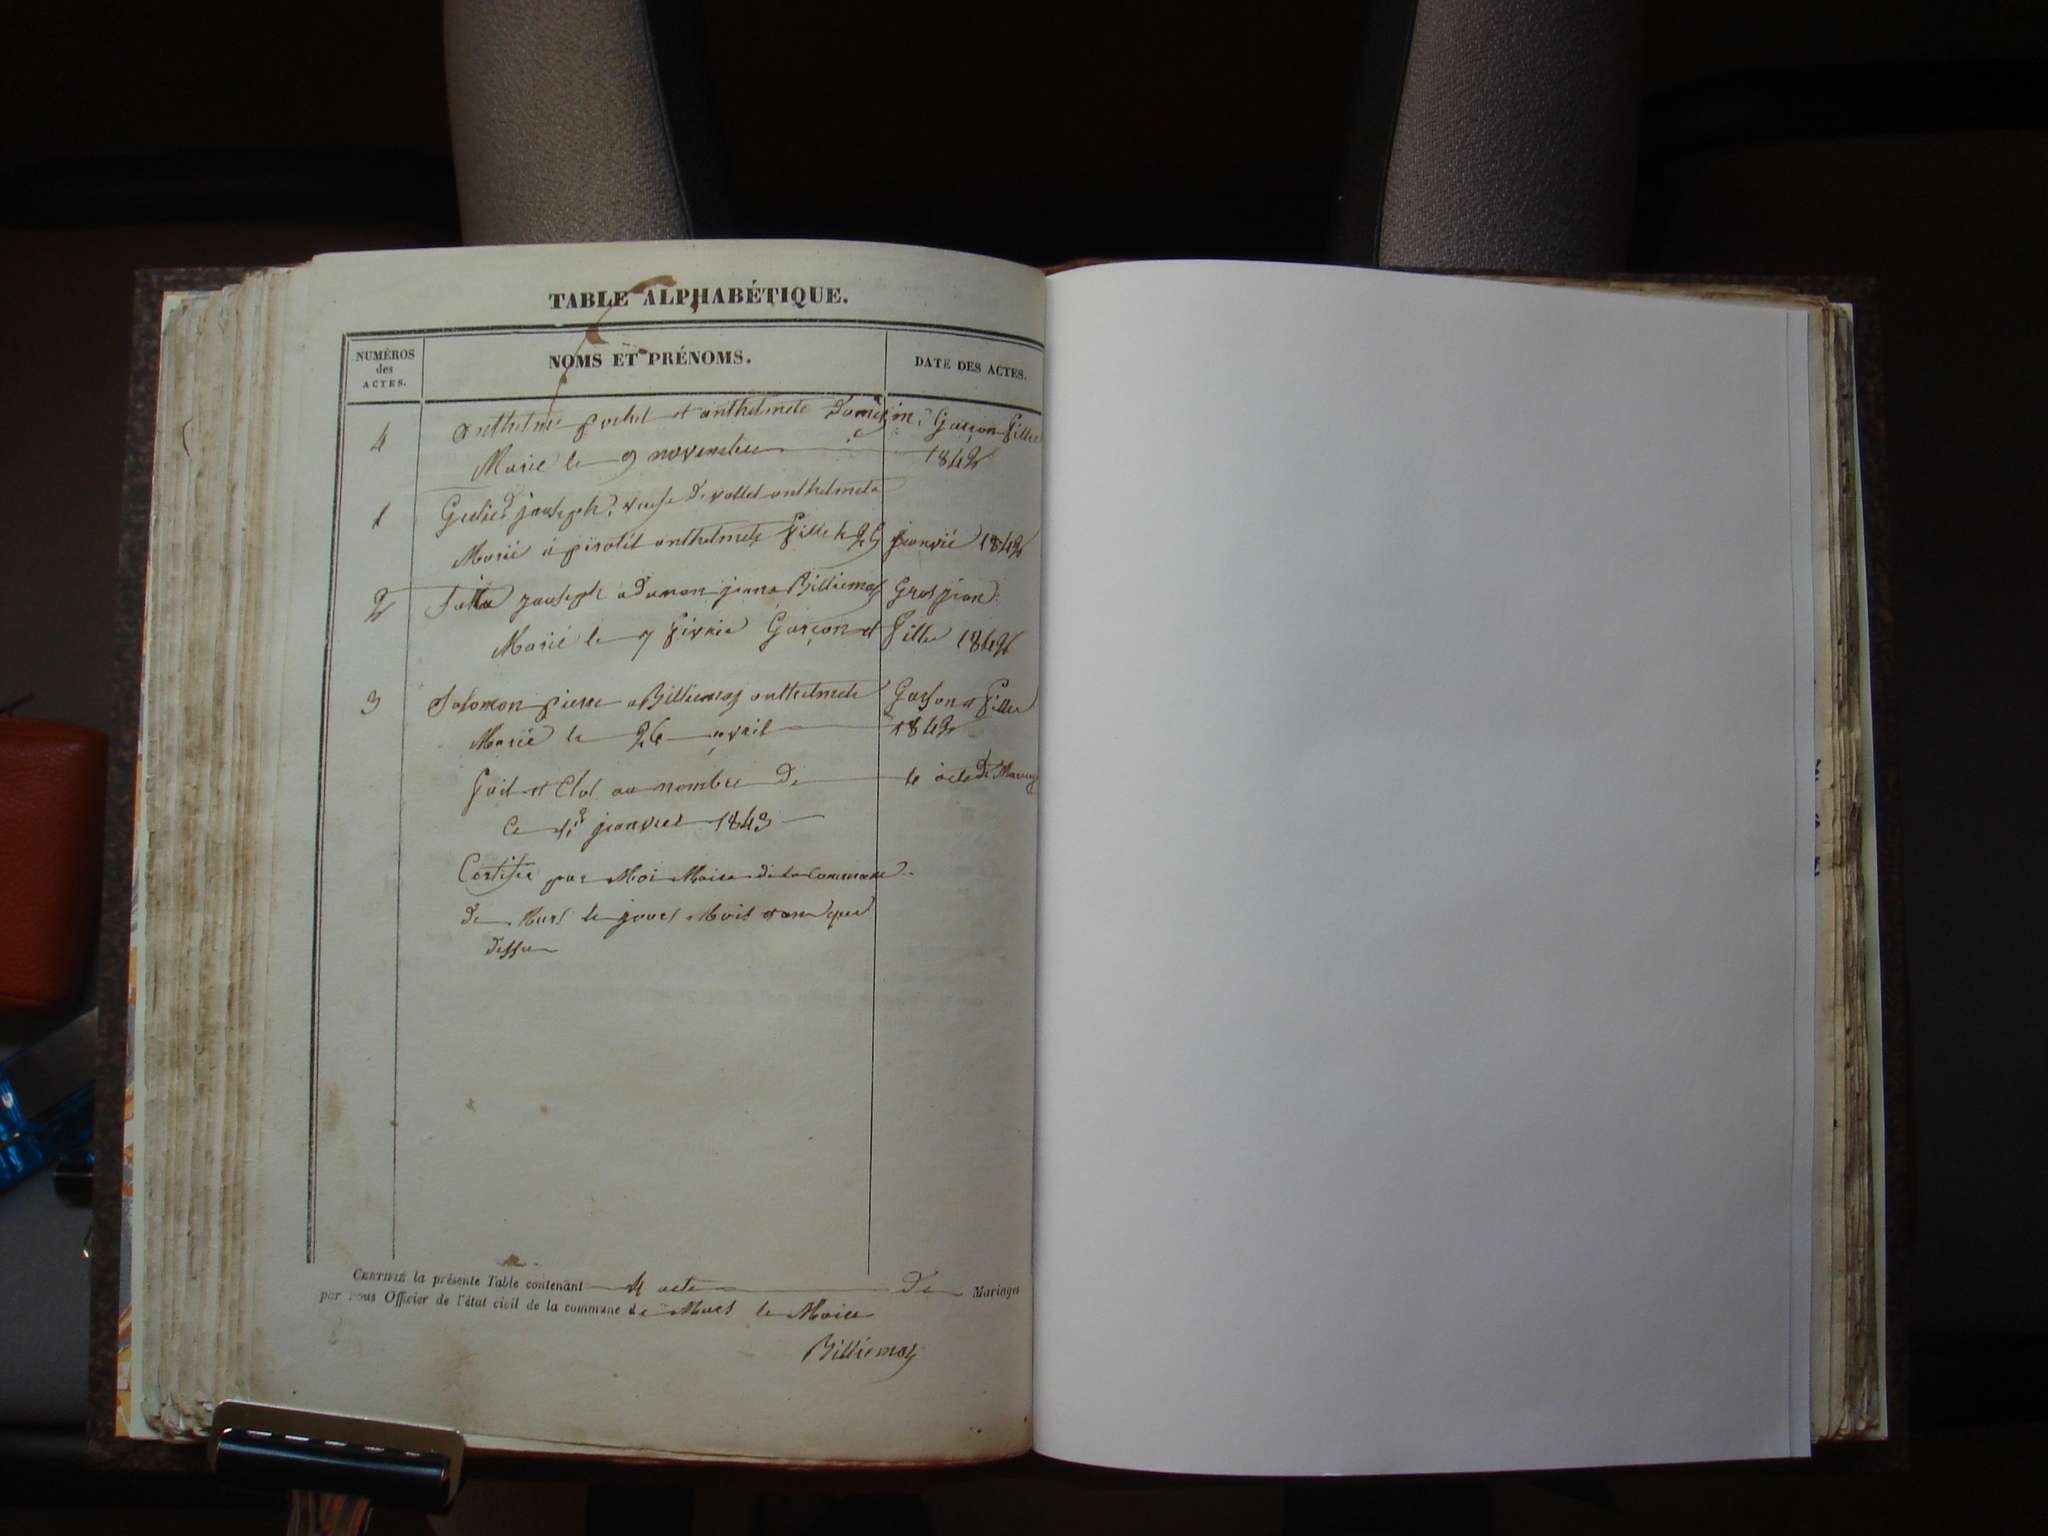 TABLE ALPHABÉTIQUE.
NUMÉROS des ACTES.
NOMS ET PRÉNOMS.
DATE DES ACTES.
4 anthelme et anthelmete Garçon fille
Marié le 9 novembre 1842
1 jauseph, anthelmete
Marié à anthelmete fille le 25 janvié 1842
2 jauseph Billiemaz Grosjean
Marié le 7 févrié Garçon et fille 1842
3 Salomon pierre a Billiemaz anthelmete Garson et fille
Marié le 26 avril 1842
fait et Clos au nombre de 4 acte de Mariage
Ce 1er janvier 1843
Certifié par Moi Maire de la Commune
de Murs le jour Mois et an que
dessu
CERTIFIÉ la présente Table contenant 4 acte de Mariages
par nous Officier de l'état civil de la commune de Murs le Maire
Billiemaz